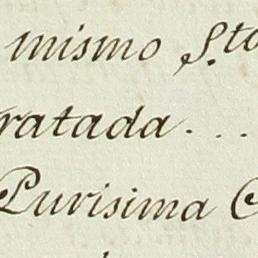 mismo S.to
ratada. . .
Purisima C